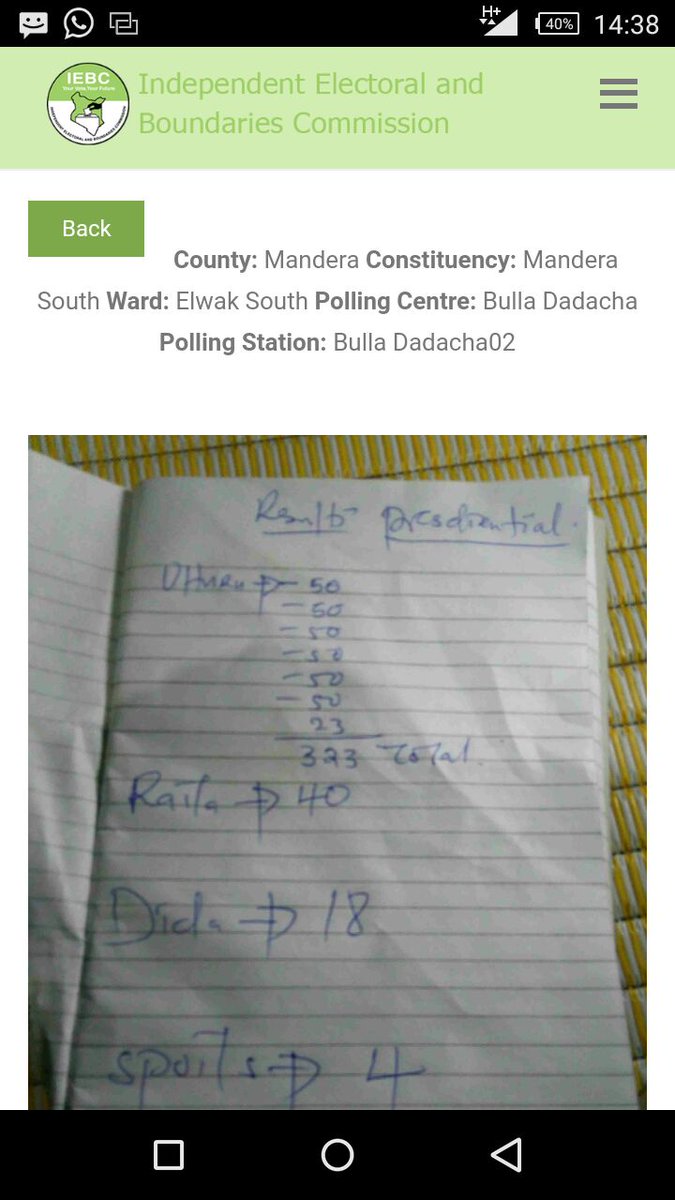 H+
40%
14:38
IEBC
Your Vote, Your Future
INDEPENDENT ELECTORAL AND BOUNDARIES COMMISSION
Independent Electoral and
Boundaries Commission
Back
County: Mandera Constituency: Mandera
South Ward: Elwak South Polling Centre: Bulla Dadacha
Polling Station: Bulla Dadacha02
Results presdiential.
Uhuru → - 50
- 50
- 50
- 50
- 50
- 50
23
323 Total.
Raila → 40
Dida → 18
spoils → 4